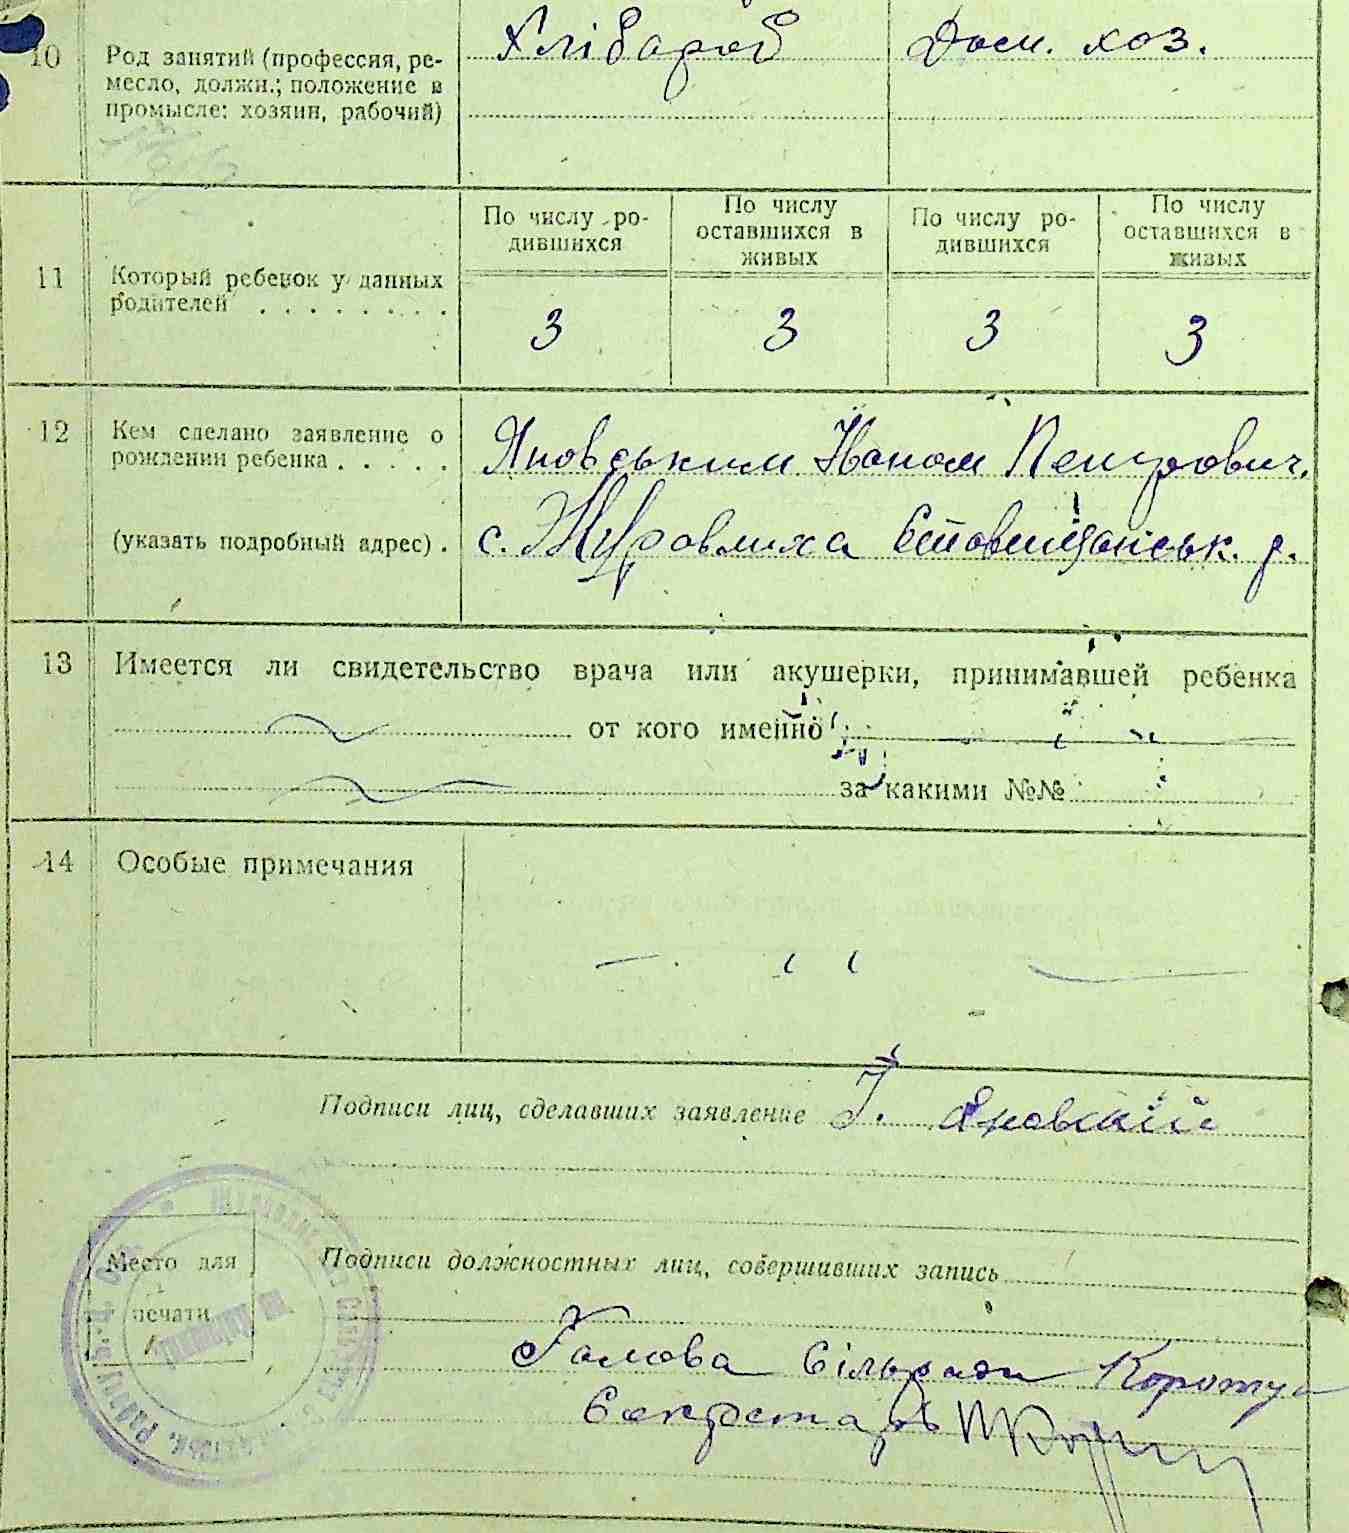 10 Род занятий (профессия, ре-
месло, должн.; положение в
промысле: хозяин, рабочий)
Хлібороб
Дом. хоз.
11 Который ребенок у данных
родителей . . . . . . . .
По числу ро-
дившихся
По числу
оставшихся в
живых
По числу ро-
дившихся
По числу
оставшихся в
живых
3 3 3 3
12 Кем сделано заявление о
рождении ребенка . . . . .
Яновським Іваном Петрович.
(указать подробный адрес) .
с. Журовлиха Ставищанськ. р.
13 Имеется ли свидетельство врача или акушерки, принимавшей ребенка
от кого именно
за какими №№
14 Особые примечания
Подписи лиц, сделавших заявление І. Яновскій
Подписи должностных лиц, совершивших запись
Место для
печати
Голова Сільради
Секретарь